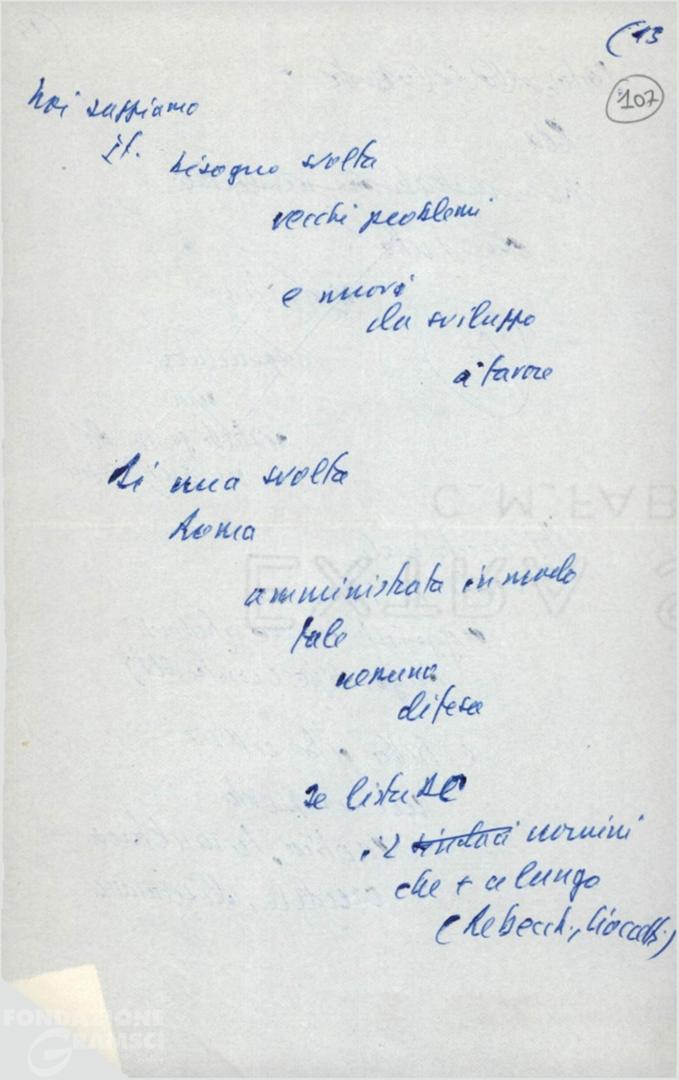 (13
107
Noi sappiamo
It. bisogno svolta
vecchi problemi
e nuovi
da sviluppo
a favore
di una svolta
Roma
amministrata in modo
tale
nessuna
difesa
se lista DC
2 sindaci uomini
che + a lungo
(Rebecch., Cioccetti)
C. M. FAB
EXTRA S
FONDAZIONE
GRAMSCI